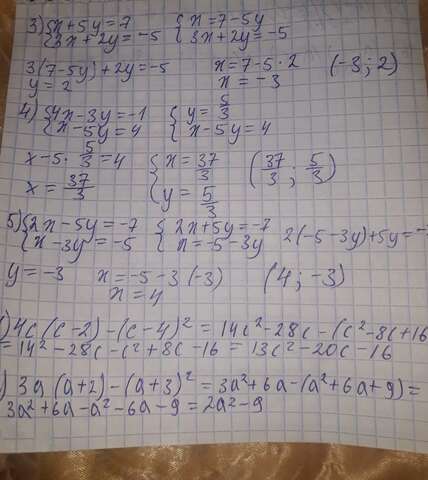 3) {x+5y=7 {x=7-5y
{3x+2y=-5 {3x+2y=-5
3(7-5y)+2y=-5 x=7-5·2 (-3; 2)
y=2 x=-3
4) {4x-3y=-1 {y=5/3
{x-5y=4 {x-5y=4
x-5·5/3=4 {x=37/3 (37/3; 5/3)
x=37/3 {y=5/3
5) {2x-5y=-7 {2x+5y=-7 2(-5-3y)+5y=-
{x-3y=-5 {x=-5-3y
y=-3 x=-5-3(-3) (4; -3)
x=4
) 4c(c-2)-(c-4)²=14c²-28c-(c²-8c+16
=14²-28c-c²+8c-16=13c²-20c-16
) 3a(a+2)-(a+3)²=3a²+6a-(a²+6a+9)=
3a²+6a-a²-6a-9=2a²-9